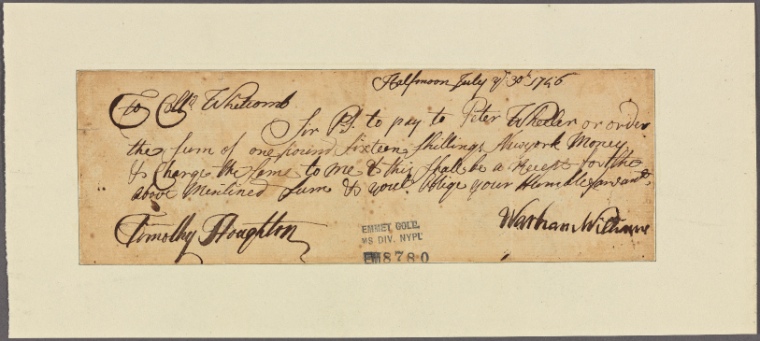 Halfmoon July ye 30th 1756
To Collo Whitcomb
Sir Ps. to pay to Peter Wheeler or order
the sum of one pound sixteen shillings Newyork Money
& Charge the same to me & this shall be a Receipt for the
above Mentined sum & youl oblige your Humble Servant
Timothy Houghton
Warham Williams
EMMET COLL.
MS DIV. NYPL
EM8780